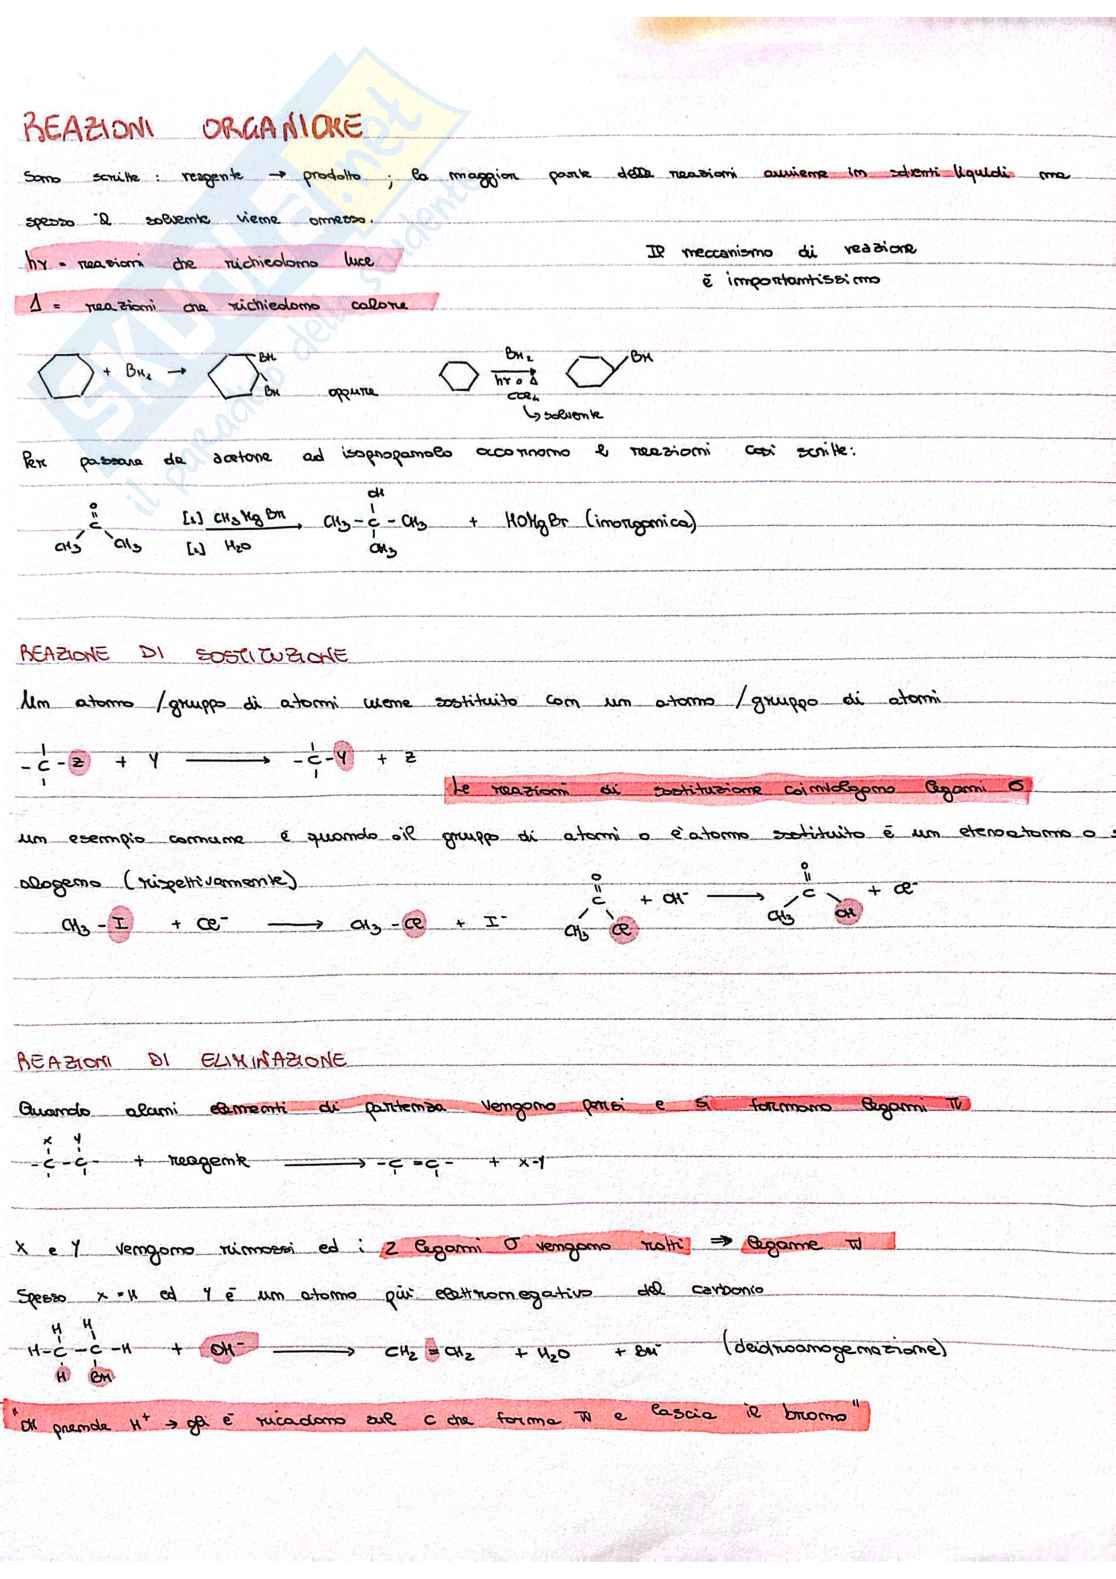 REAZIONI ORGANICHE
Sono scritte : reagente → prodotto ; la maggior parte delle reazioni avviene in solventi liquidi ma
spesso il solvente viene omesso.
hγ = reazioni che richiedono luce
Il meccanismo di reazione
è importantissimo
Δ = reazioni che richiedono calore
+ Br₂ → Br Br oppure Br₂ hγ o Δ CCl₄ Br
↳ solvente
Per passare da acetone ad isopropanolo occorrono le reazioni così scritte:
O OH
C [1] CH₃MgBr CH₃ - C - CH₃ + HOMgBr (inorganica)
CH₃ CH₃ [2] H₂O CH₃
REAZIONE DI SOSTITUZIONE
Un atomo /gruppo di atomi viene sostituito con un atomo /gruppo di atomi
- C - Z + Y → - C - Y + Z
Le reazioni di sostituzione coinvolgono legami σ
un esempio comune è quando il gruppo di atomi o l'atomo sostituito è un eteroatomo o
alogeno (rispettivamente)
CH₃ - I + Cl⁻ → CH₃ - Cl + I⁻
O C CH₃ Cl + OH⁻ → O C CH₃ OH + Cl⁻
REAZIONI DI ELIMINAZIONE
Quando alcuni elementi di partenza vengono persi e si formano legami π
X Y
- C - C - + reagente → - C = C - + X-Y
X e Y vengono rimossi ed i 2 legami σ vengono rotti ⇒ legame π
Spesso X = H ed Y è un atomo più elettronegativo del carbonio
H H
H - C - C - H + OH⁻ → CH₂ = CH₂ + H₂O + Br⁻ (deidroalogenazione)
H Br
"OH prende H⁺ → gli e⁻ ricadono sul C che forma π e lascia il bromo"
SKUOLA.net
il paradiso dello studente